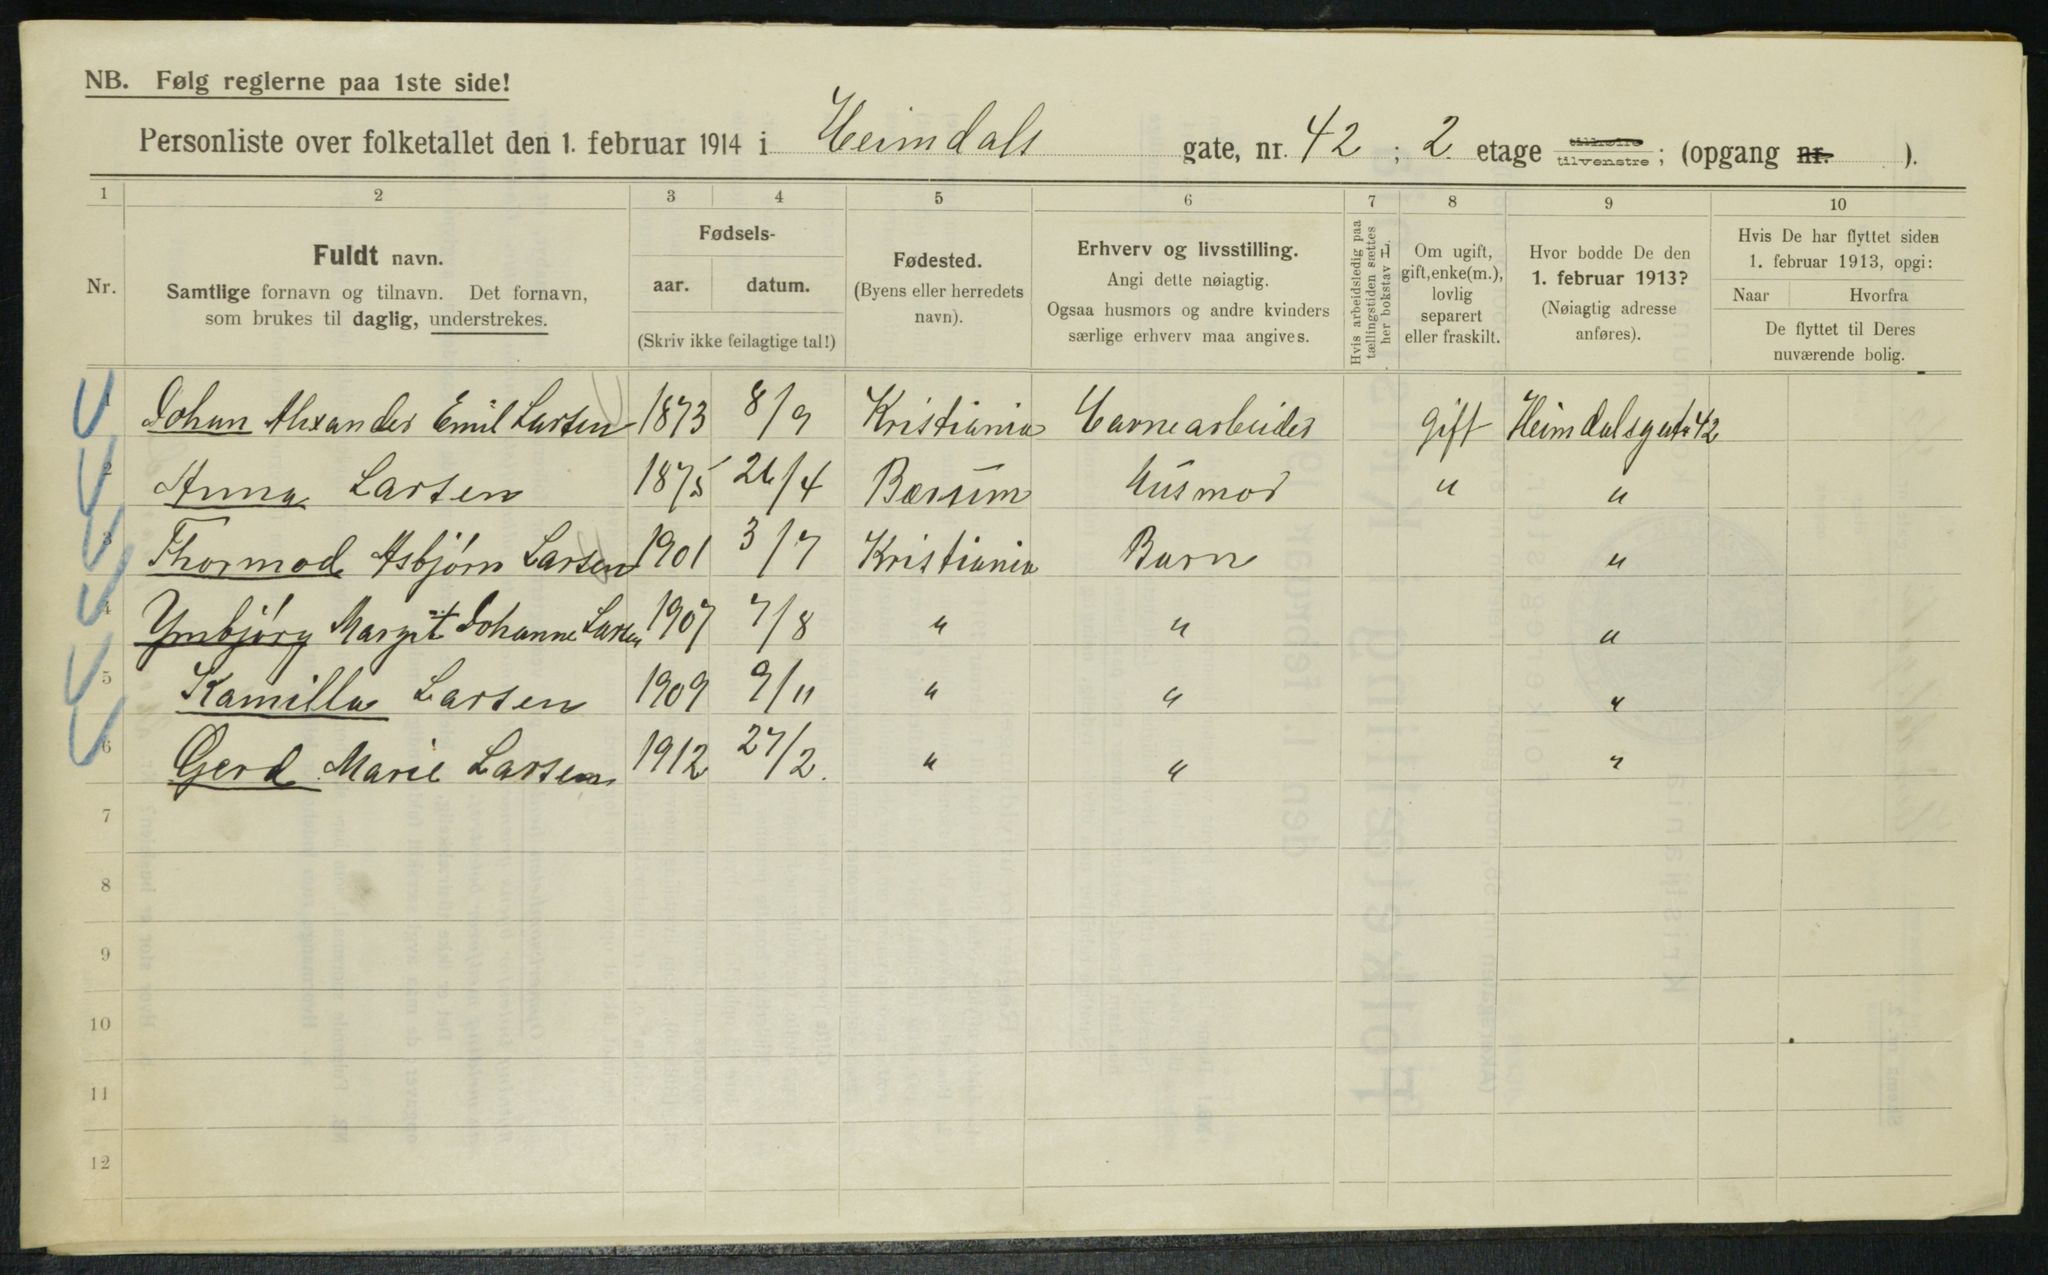 NB. Følg reglerne paa 1ste side!
Personliste over folketallet den 1. februar 1914 i Heimdals gate, nr. 42 ; 2. etage tilhøire tilvenstre ; (opgang nr. ).
1 2 3 4 5 6 7 8 9 10
Nr.
Fuldt navn.
Samtlige fornavn og tilnavn. Det fornavn,
som brukes til daglig, understrekes.
Fødsels-
aar. datum.
(Skriv ikke feilagtige tal!)
Fødested.
(Byens eller herredets
navn).
Erhverv og livsstilling.
Angi dette nøiagtig.
Ogsaa husmors og andre kvinders
særlige erhverv maa angives.
Hvis arbeidsledig paa
tællingstiden sættes
her bokstav L.
Om ugift,
gift, enke(m.),
lovlig
separert
eller fraskilt.
Hvor bodde De den
1. februar 1913?
(Nøiagtig adresse
anføres).
Hvis De har flyttet siden
1. februar 1913, opgi:
Naar Hvorfra
De flyttet til Deres
nuværende bolig.
1 Johan Alexander Emil Larsen 1873 8/9 Kristiania Garnearbeider gift Heimdalsgate 42
2 Anna Larsen 1875 26/4 Bærum Husmor " "
3 Thormod Asbjørn Larsen 1901 3/7 Kristiania Barn "
4 Ynbjørg Margit Johanne Larsen 1907 7/8 " " "
5 Kamilla Larsen 1909 9/11 " " "
6 Gerd Marie Larsen 1912 27/2. " " "
7
8
9
10
11
12